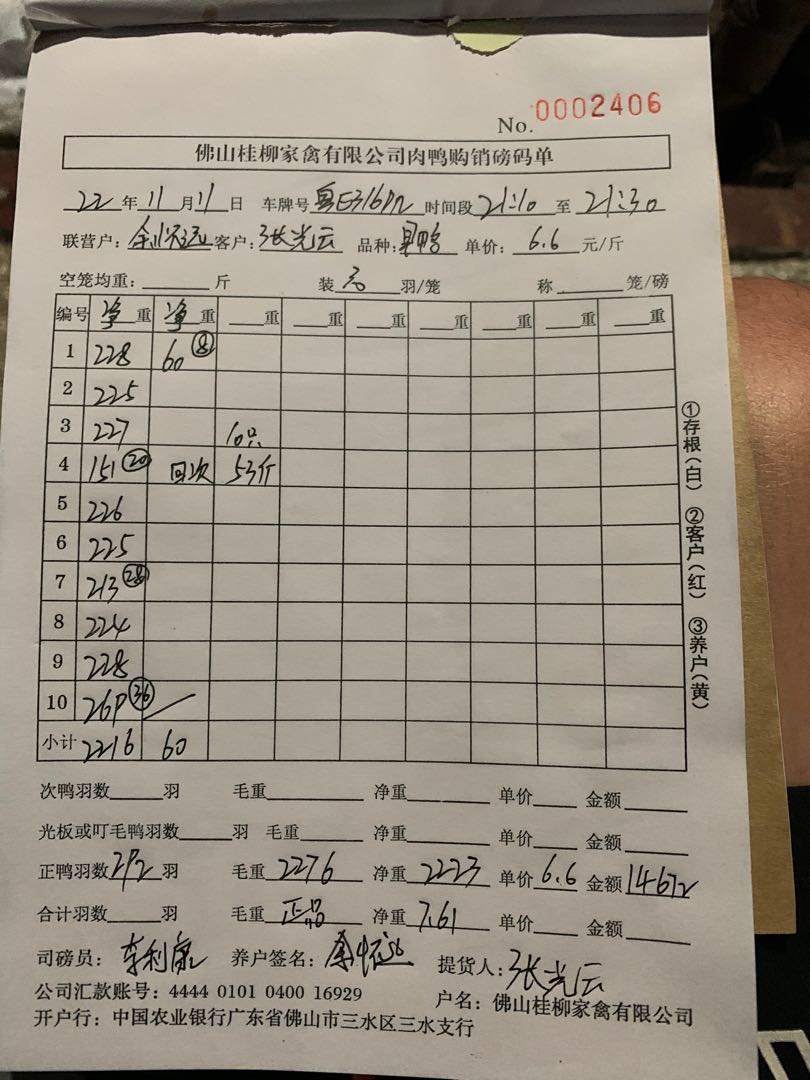 No. 0002406
佛山桂柳家禽有限公司肉鸭购销磅码单
22年11月11日 车牌号 粤E316P 时间段 21:10 至 21:30
联营户: 余怀远 客户: 张光云 品种: 鸭 单价: 6.6 元/斤
空笼均重: 斤 装 羽/笼 称 笼/磅
编号 净重 净重 重 重 重 重 重 重 重
1 228 60 ⑧
2 225
3 227 10只
4 151 ⑳ 回次 53斤
5 226
6 225
7 213 ㉘
8 224
9 228
10 269 ㊱
小计 2216 60
次鸭羽数 羽 毛重 净重 单价 金额
光板或叮毛鸭羽数 羽 毛重 净重 单价 金额
正鸭羽数 292 羽 毛重 2276 净重 2223 单价 6.6 金额 14672
合计羽数 羽 毛重 正品 净重 7.61 单价 金额
司磅员: 李利康 养户签名: 余怀远 提货人: 张光云
公司汇款账号: 4444 0101 0400 16929 户名: 佛山桂柳家禽有限公司
开户行: 中国农业银行广东省佛山市三水区三水支行
①存根(白) ②客户(红) ③养户(黄)